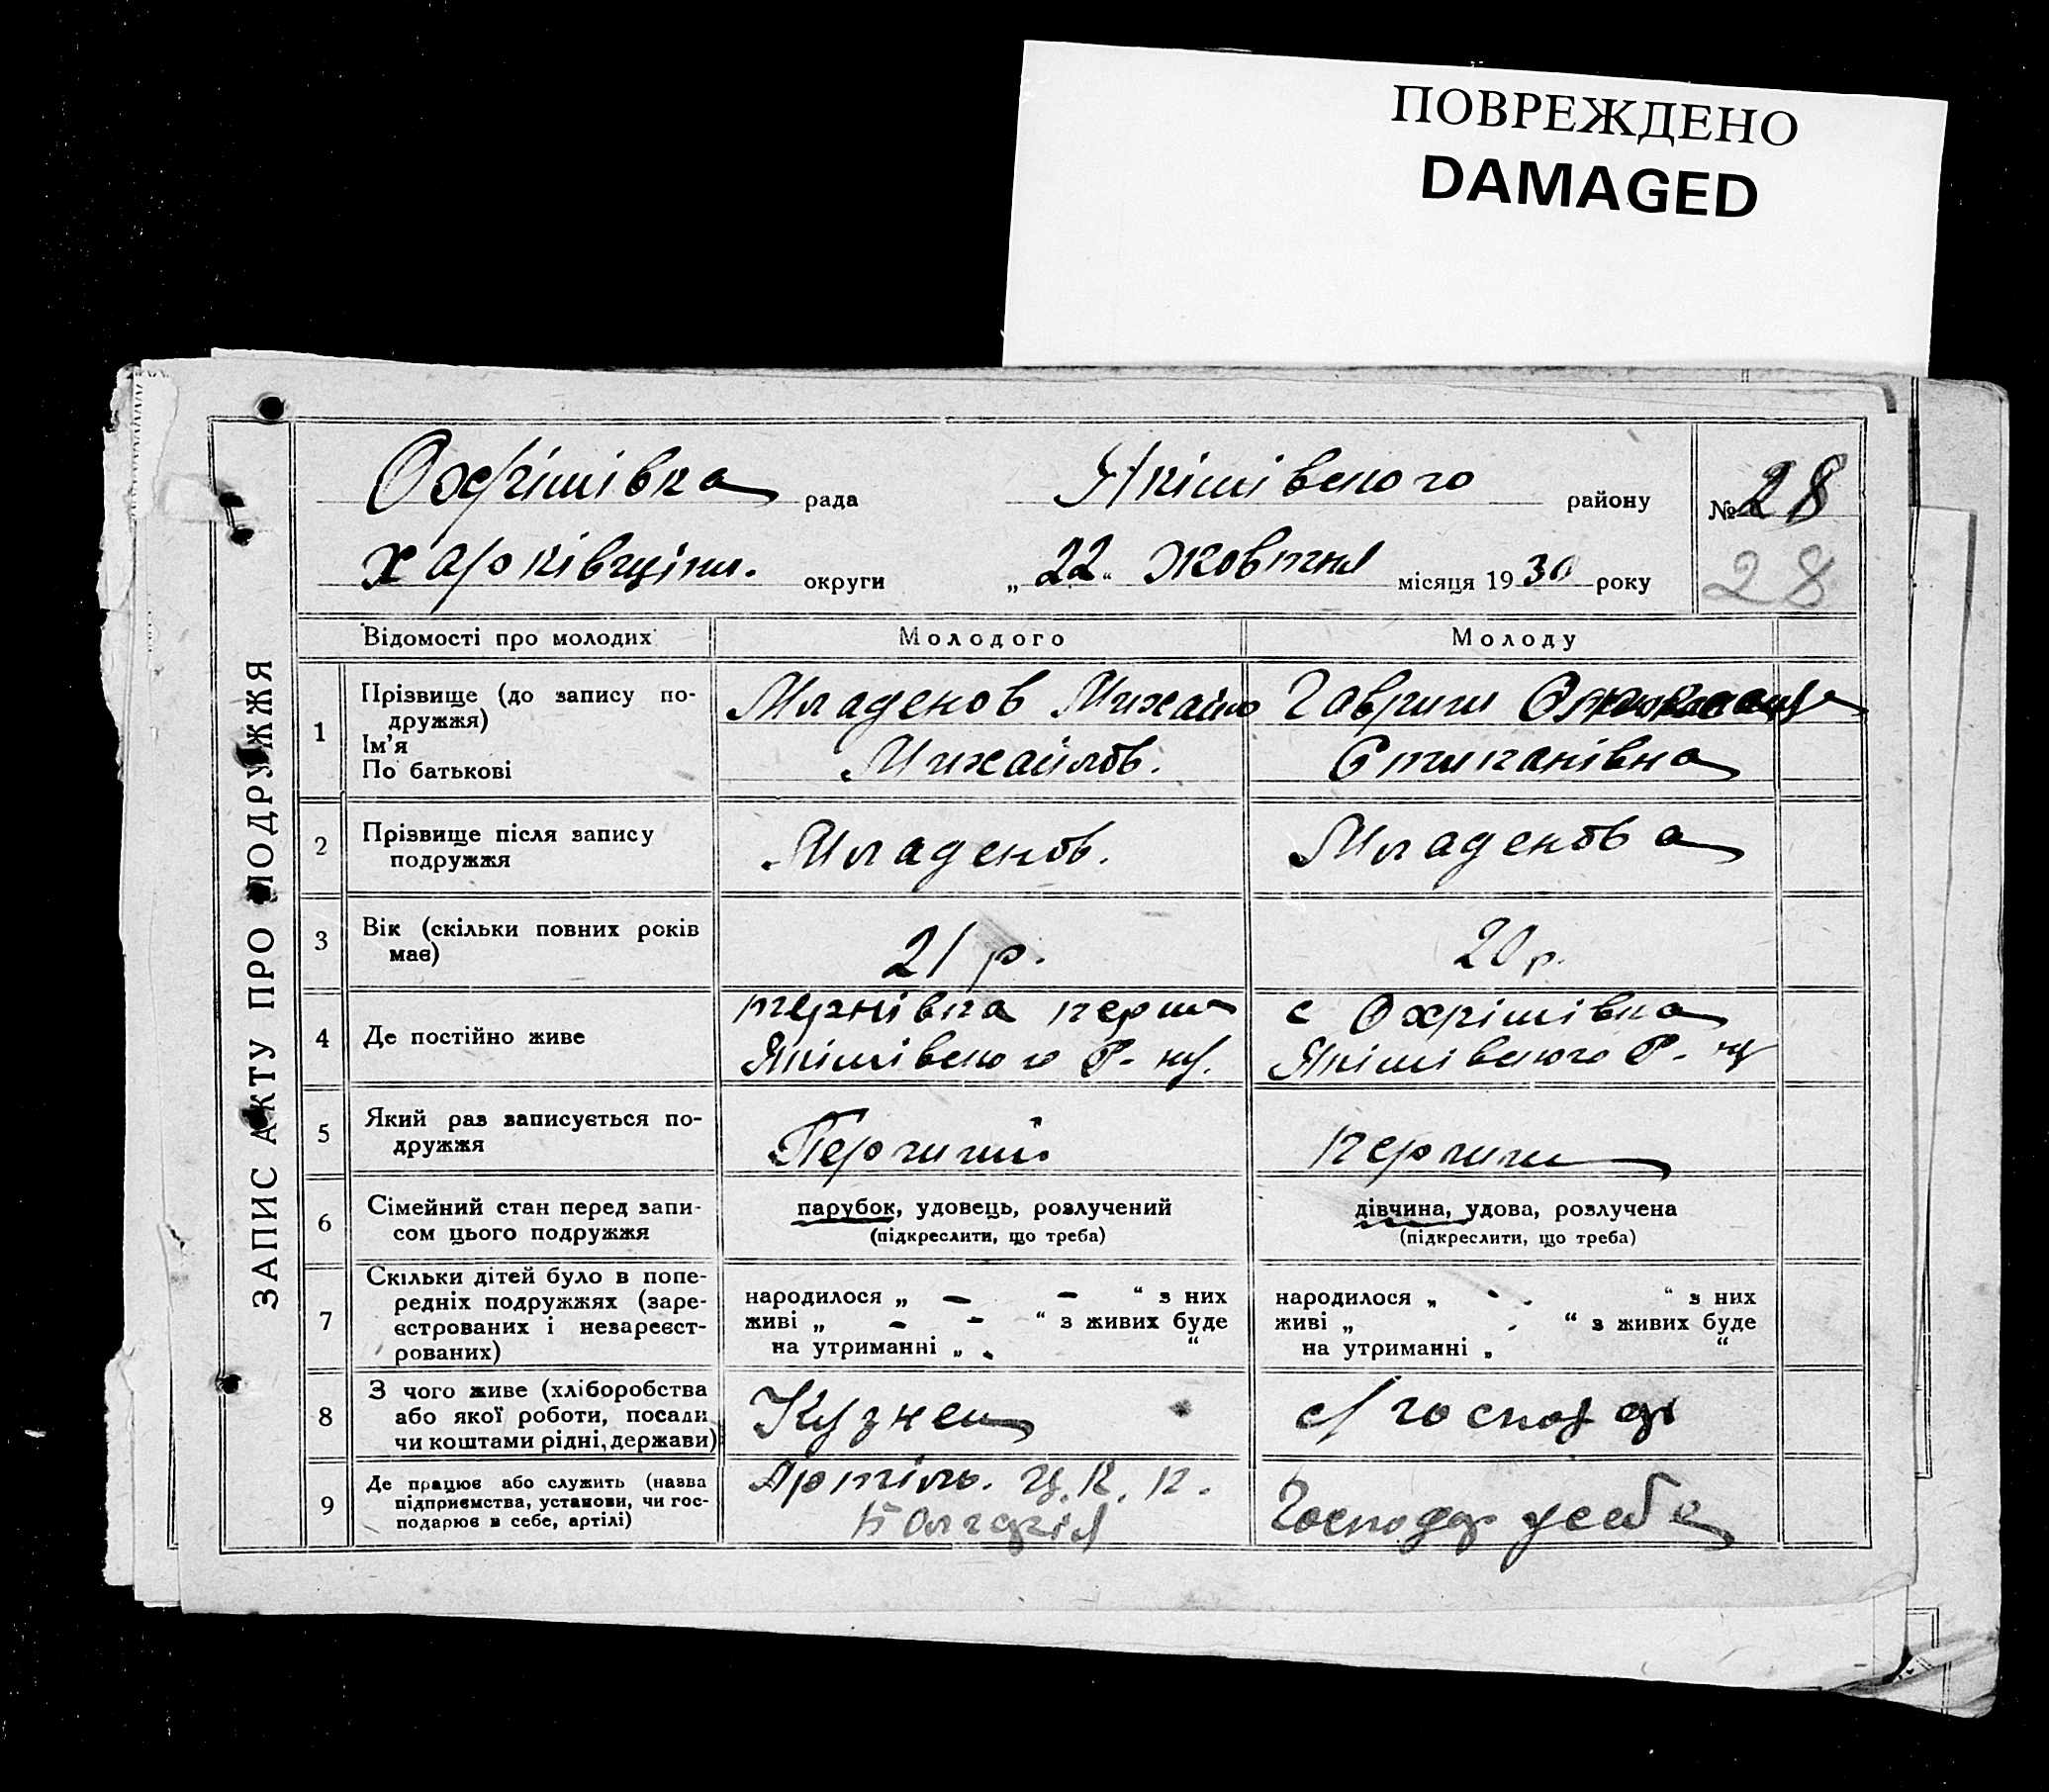 ПОВРЕЖДЕНО
DAMAGED
ЗАПИС АКТУ ПРО ПОДРУЖЖЯ
Охрімівка рада Якімівського району № 28
Харківщіни. округи „22“ жовтня місяця 1930 року 28
Відомості про молодих Молодого Молоду
1 Прізвище (до запису по-
дружжя)
Ім'я
По батькові
Младенов Михайло
Михайлов.
Гавриш
Степанівна
2 Прізвище після запису
подружжя
Младенов.
Младенова
3 Вік (скільки повних років
має)
21 р.
20 р.
4 Де постійно живе
тернівка перша
Якімівського Р-ну.
с Охрімівка
Якімівського Р-ну
5 Який раз записується по-
дружжя
Перчий
перчи
6 Сімейний стан перед запи-
сом цього подружжя
парубок, удовець, розлучений
(підкреслити, що треба)
дівчина, удова, розлучена
(підкреслити, що треба)
7 Скільки дітей було в попе-
редніх подружжях (заре-
єстрованих і незареєст-
рованих)
народилося „ - - “ з них
живі „ - - “ з живих буде
на утриманні „ “
народилося „ “ з них
живі „ “ з живих буде
на утриманні „ “
8 З чого живе (хліборобства
або якої роботи, посади
чи коштами рідні, держави)
Кузнец
с/господ
9 Де працює або служить (назва
підприємства, установи, чи гос-
подарює в себе, артілі)
Артіль.
Господар усебе